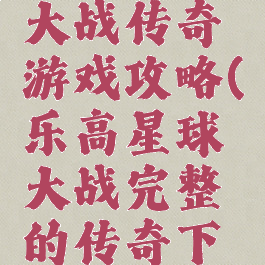 大战传奇
游戏攻略(
乐高星球
大战完整
的传奇下